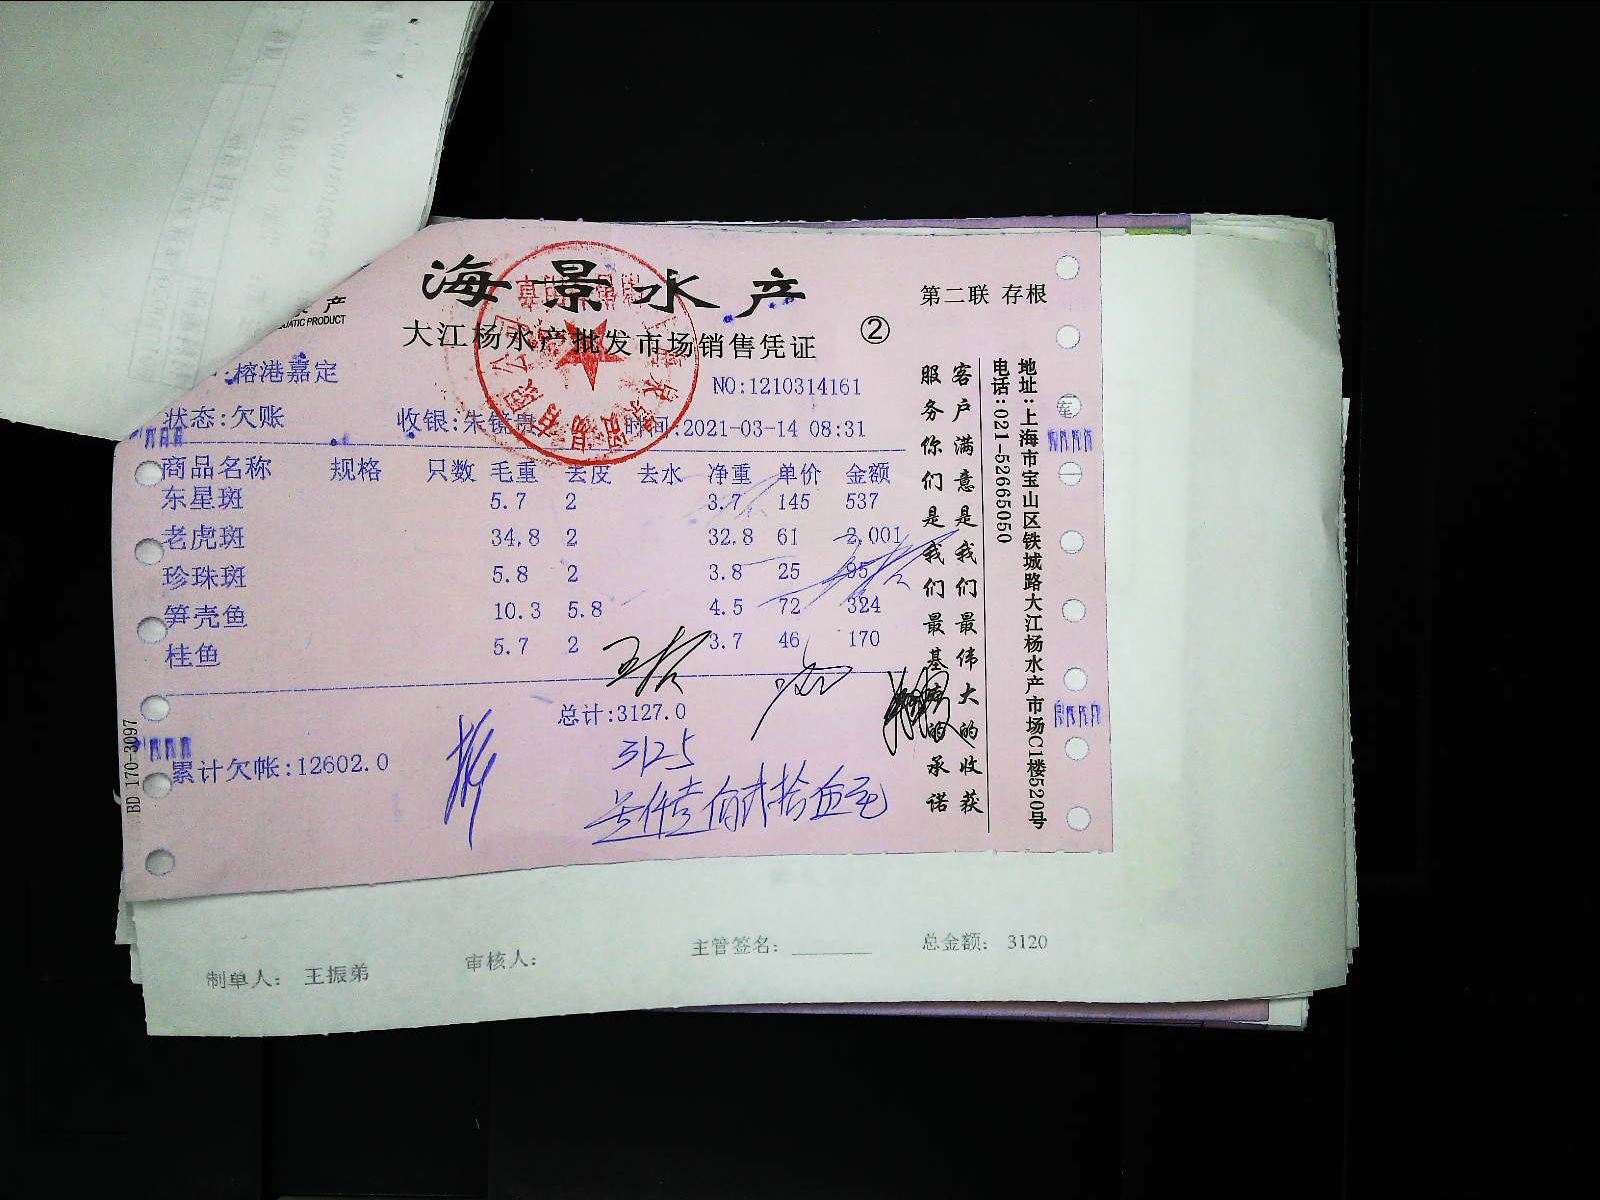 海景水产
第二联 存根
产
UATIC PRODUCT
大江杨水产批发市场销售凭证 ②
榕港嘉定
NO:1210314161
状态:欠账 收银:朱镜贵 时间:2021-03-14 08:31
商品名称 规格 只数 毛重 去皮 去水 净重 单价 金额
东星斑 5.7 2 3.7 145 537
老虎斑 34.8 2 32.8 61 2,001
珍珠斑 5.8 2 3.8 25 95
笋壳鱼 10.3 5.8 4.5 72 324
桂鱼 5.7 2 3.7 46 170
总计:3127.0
3125
叁仟壹佰贰拾伍元
累计欠帐:12602.0
BD 170-3097
客户满意是我们最伟大的收获
服务你们是我们最基本的承诺
地址:上海市宝山区铁城路大江杨水产市场C1楼520号
电话:021-52665050
制单人: 王振弟 审核人: 主管签名: 总金额: 3120